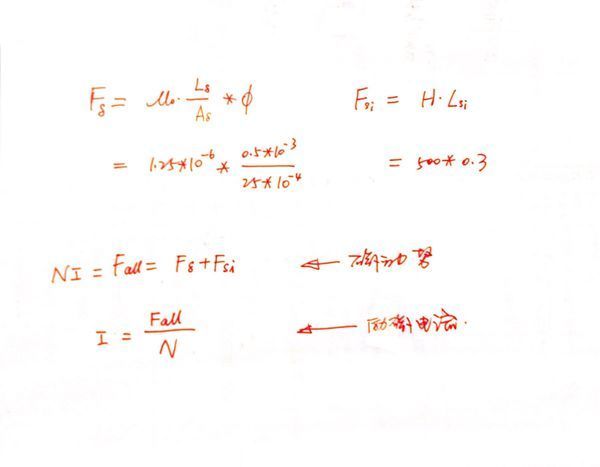 F_δ = μ₀ · L_δ / A_δ * ϕ
F_si = H · L_si
= 1.25*10^-6 * 0.5*10^-3 / 25*10^-4
= 500 * 0.3
NI = Fall = F_δ + F_si ← 磁动势
I = Fall / N ← 励磁电流.